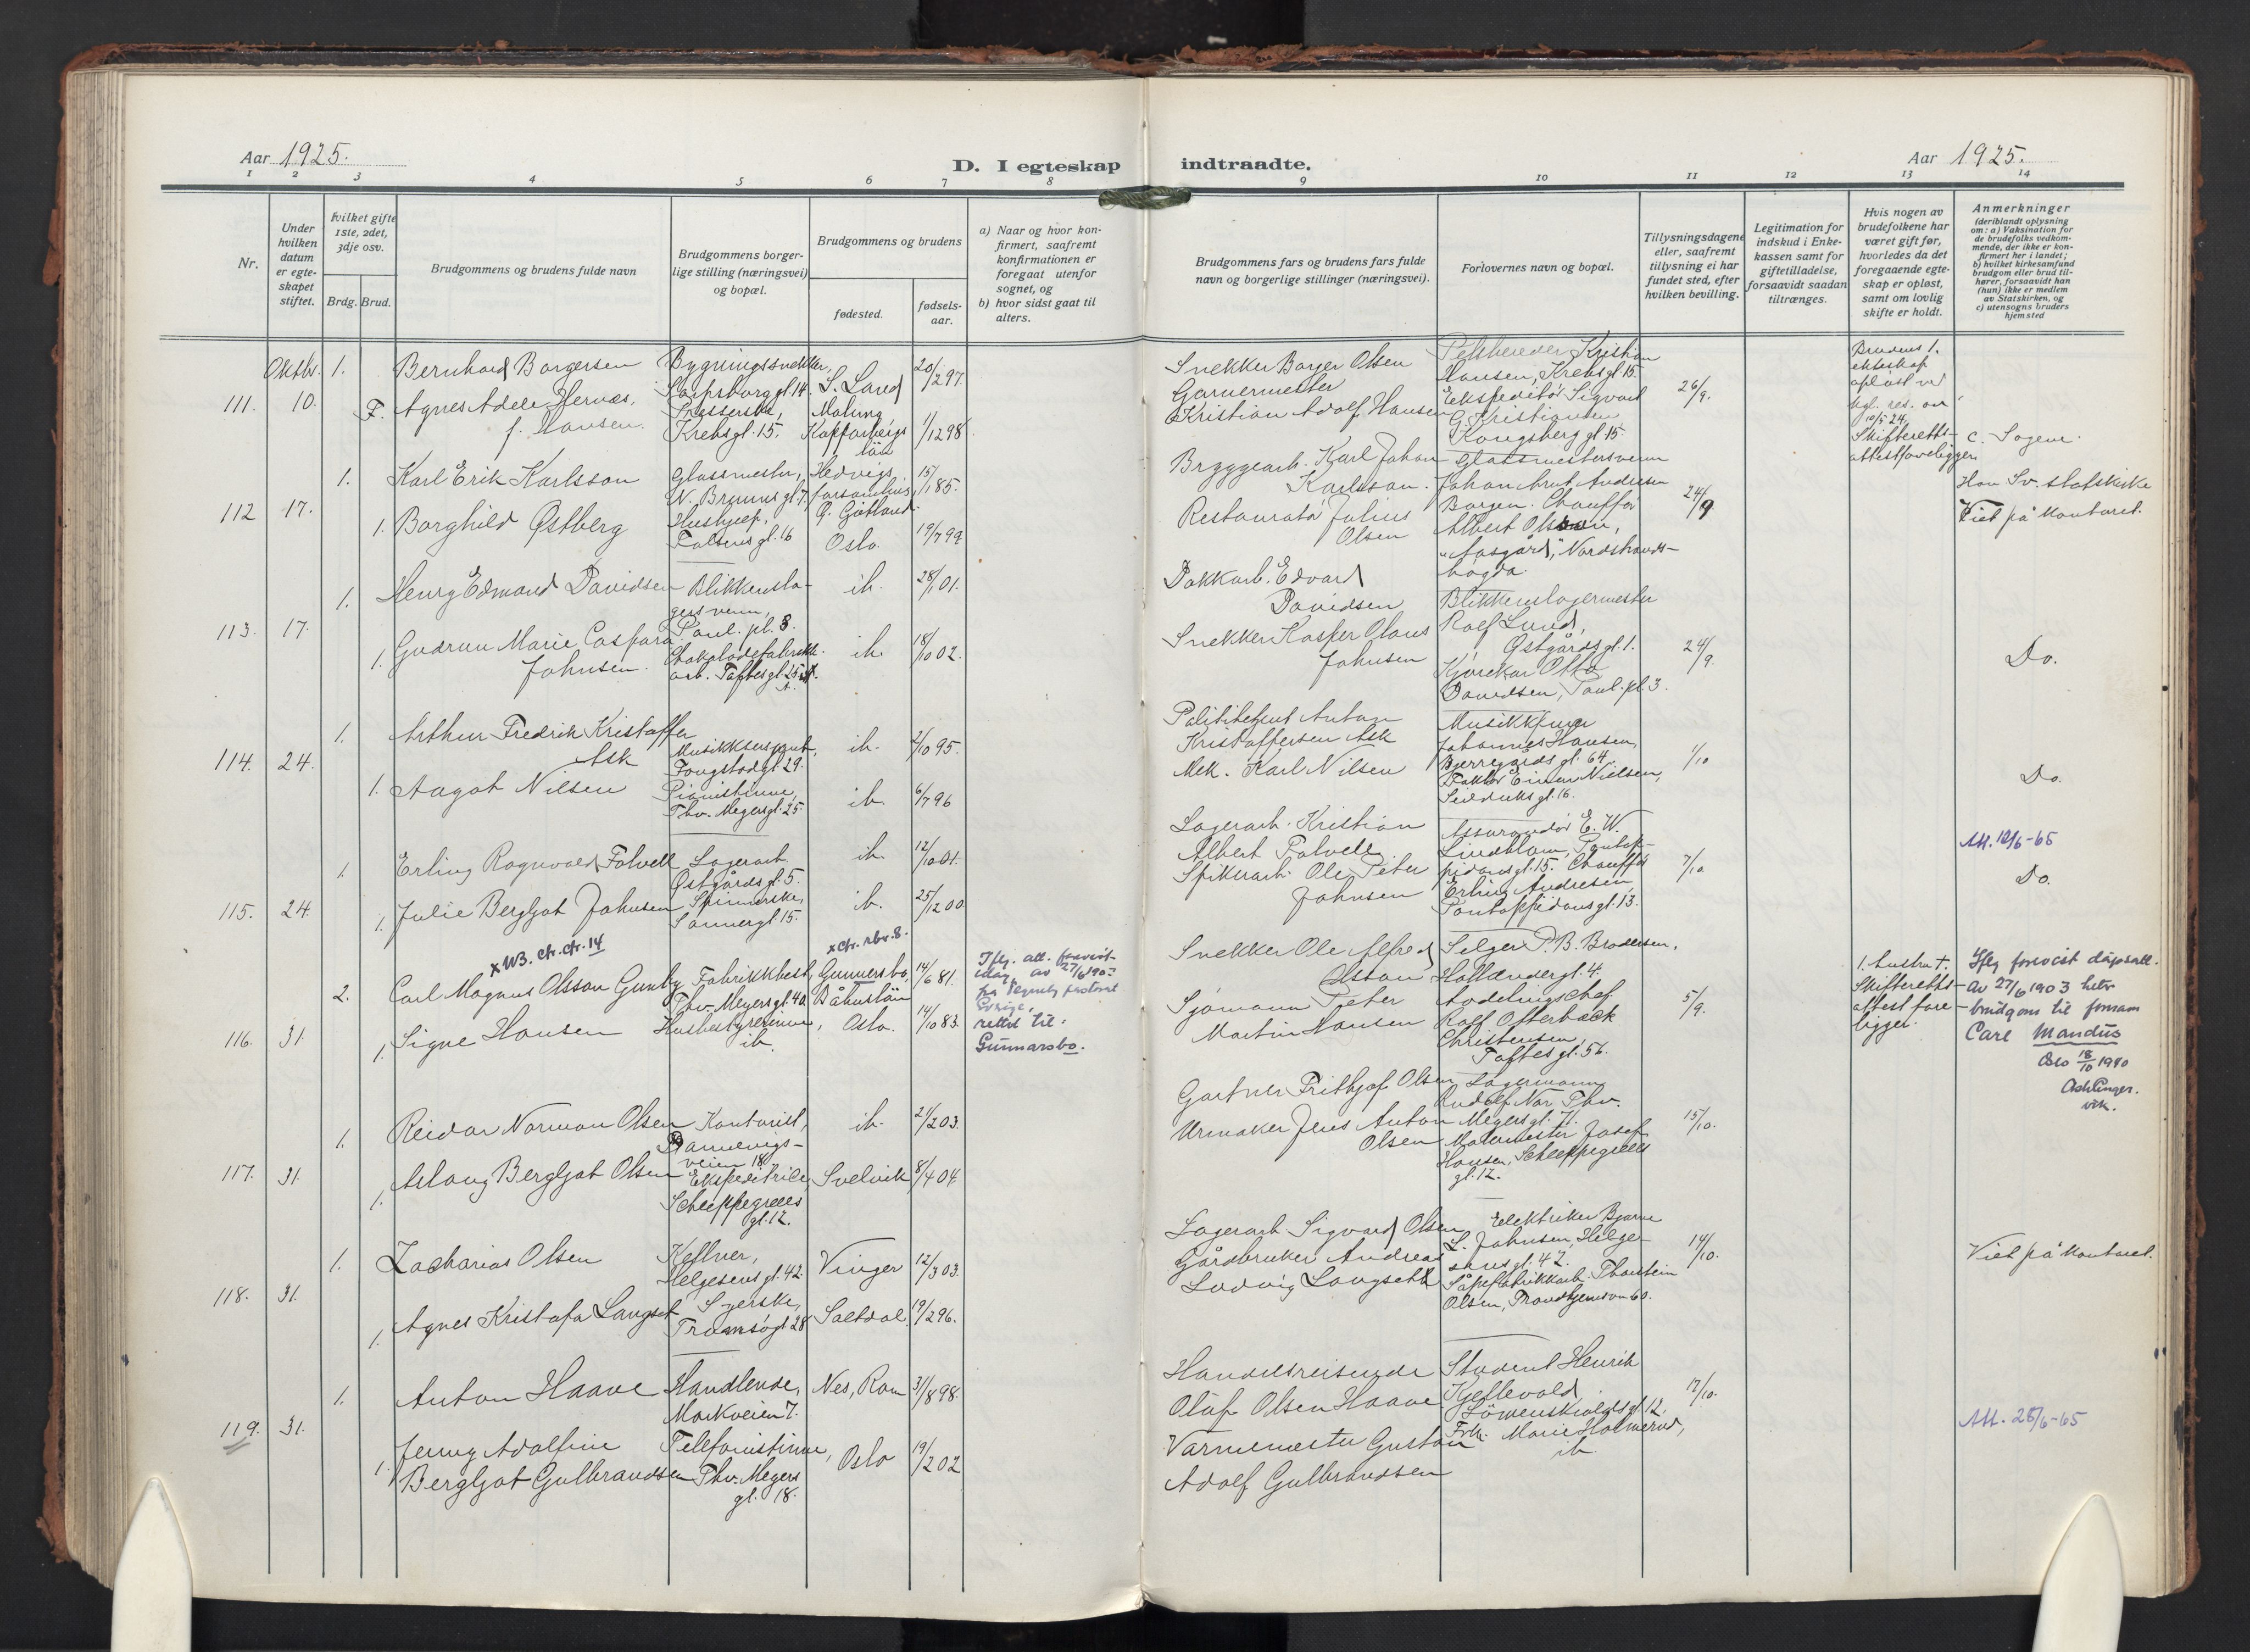 Aar 1925.
D. I egteskap
indtraadte.
Aar 1925.
1 2 3 4 5 6 7 8 9 10 11 12 13 14
Nr.
Under hvilken datum er egteskapet stiftet.
Hvilket gifte 1ste, 2det, 3dje osv.
Brdg. Brud.
Brudgommens og brudens fulde navn
Brudgommens borgerlige stilling (næringsvei) og bopæl.
Brudgommens og brudens
fødested.
fødselsaar.
a) Naar og hvor konfirmert, saafremt konfirmationen er foregaat utenfor sognet, og
b) hvor sidst gaat til alters.
Brudgommens fars og brudens fars fulde navn og borgerlige stillinger (næringsvei).
Forlovernes navn og bopæl.
Tillysningsdagene eller, saafremt tillysning ei har fundet sted, efter hvilken bevilling.
Legitimation for indskud i Enkekassen samt for giftetilladelse, forsaavidt saadan tiltrænges.
Hvis nogen av brudefolkene har været gift før, hvorledes da det foregaaende egteskap er opløst, samt om lovlig skifte er holdt.
Anmerkninger
(deriblandt oplysning om: a) Vaksination for de brudefolks vedkommende, der ikke er konfirmert her i landet; b) hvilket kirkesamfund brudgom eller brud tilhører, forsaavidt han (hun) ikke er medlem av Statskirken, og c) utensogns bruders hjemsted
Oktbr. 1. Bernhard Borgersen
Bygningssnekker, Sarpsborg gt. 14.
S. Land
20/2 97.
Snekker Borger Olsen
Pelsbereder Kristian Hansen, Krebsgt. 15.
111. 10. F. Agnes Adele Hervæs, f. Hansen.
Presserske, Krebsgt. 15.
Malung, Kopparbergs län
1/12 98
Garvermester Kristian Adolf Hansen
Ekspeditør Sigvart G. Kristiansen Kongsberg gt 15.
26/9.
Brudens 1. ekteskap opløst ved kgl. res. av 10/5 24. Skifteretts-attest foreligger.
c. Sogene.
1. Karl Erik Karlsson
Glassmester, W. Bruuns gt 7.
Hedvigs forsamling, Ö. Götland.
15/1 85.
Bryggearb. Karl Johan Karlsson.
Glassmestersvenn Johan Arnt Andresen
Han Sv. statskirke
112 17. 1. Borghild Østberg
Hushjelp, Falsens gt. 16
Oslo.
19/7 99
Restauratør Julius Olsen
Borgen. Chauffør Albert Olsson, "Åsgård", Nordstrands-høgda.
24/9
Viet på kontoret.
1. Henry Edmond Davidsen
Blikkenslagersvenn, Paul. pl. 3.
ib.
28/1 01.
Pakkarb. Edvard Davidsen
Blikkenslagermester Rolf Lund, Østgårdsgt. 1.
113. 17. 1. Gudrun Marie Caspara Johnsen.
Chokoladefabrikk-arb. Toftesgt. 25
ib.
18/10 02.
Snekker Kasper Olaus Johnsen
Kjørekar Otto Davidsen, Paul. pl. 3.
24/9.
Do.
1. Arthur Fredrik Kristoffer Ask
Fougstadgt. 29.
ib.
2/10 95.
Politibetjent Anton Kristoffersen Ask
Johannes Hansen, Bjerregårds gt. 64.
114. 24. 1. Aagot Nilsen
Pianistinne, Thv. Meyersgt. 25.
ib.
6/7 96
Mek. Karl Nilsen
Faktor Einar Nielsen, Seilduks gt. 16.
1/10
Do.
1. Erling Ragnvald Folvell
Lagerarb. Østgårdsgt. 5.
ib.
12/10 01.
Lagerarb. Kristian Albert Folvell
Assurandør E. W. Lindblom, Pontoppidansgt. 15.
Att. 12/6-65
115. 24. 1. Julie Bergljot Johnsen
Spinnerske, Sannergt. 15
ib.
25/12 00
Spikerarb. Ole Peter Johnsen
Chauffør Erling Andresen, Pontoppidansgt. 13.
7/10
Do.
x WB. chr. chr. 14
x chr. rbr. 8.
2. Carl Magnus Olsson Gunby
Fabrikkbest. Thv. Meyers gt. 40.
Gunnersbo, Båhuslän
14/6 81.
Iflg. att. forevist idag av 27/6 1903 fra
Sverige, rettet til: Gunnarsbo.
Snekker Ole Alfred
Selger P. B. Brodersen, Hollendergt. 4.
1. hustru †. Skifteretts-attest foreligger.
Iflg forevist dåpsatt. av 27/6 1903 heter brudgom til fornavn Carl Mandus
Oslo 18/10 1940
116. 31. 1. Signe Hansen
Husbestyrerinne, ib.
Oslo.
14/10 83.
Sjømann Peter Martin Hansen
Avdelingschef Rolf Otterbeck Christensen, Toftesgt. 56.
5/9.
1. Reidar Norman Olsen
Kontorist, Dannevigs-veien 18
ib.
21/2 03.
Gartner Frithjof Olsen
Lagermann Rudolf Nor. Thv. Meyersgt. 71.
117. 31. 1. Aslaug Bergljot Olsen
Ekspeditrice, Scheppegrells gt. 12.
Svelvik
8/4 04
Urmaker Jens Anton Olsen
Malermester Josef Hansen, Scheppegrells gt. 12.
15/10.
1. Zacharias Olsen
Kellner, Helgesens gt. 42.
Vinger
12/3 03.
Lagerarb. Sigvard Olsen
Elektriker Bjarne L. Johnsen, Helgesens gt. 42.
Viet på kontoret.
118. 31. 1. Agnes Kristofa Langset
Syerske, Tromsøgt 28
Saltdal.
19/2 96.
Gårdbruker Andreas Ludvig Langsett
Såpefabrikkarb. Thorstein Olsen, Trondhjemsvn 60.
14/10.
1. Anton Haave
Handlende, Markveien 7.
Nes, Rom
31/8 98
Handelsreisende Olaf Olsen Haave
Student Henrik Kjellevold, Løvenskiolds gt. 12.
119. 31. 1. Jenny Adolfine Bergljot Gulbrandsen
Telefonistinne, Thv. Meyers gt. 18.
Oslo
19/2 02
Varmemester Gustav Adolf Gulbrandsen
Frk. Marie Holmerud, ib
12/10.
Att. 28/6-65